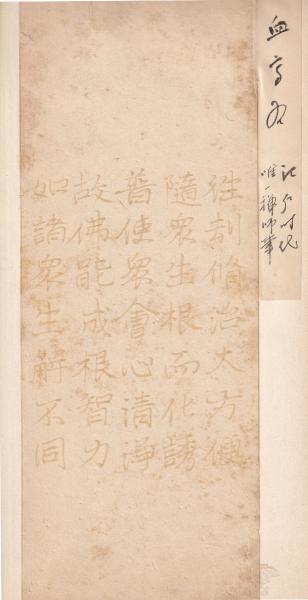 血書経
江戸時代
唯一禅師筆
往刹脩治大方便
隨衆生根而化誘
普使衆會心清淨
故佛能成根智力
如諸衆生解不同